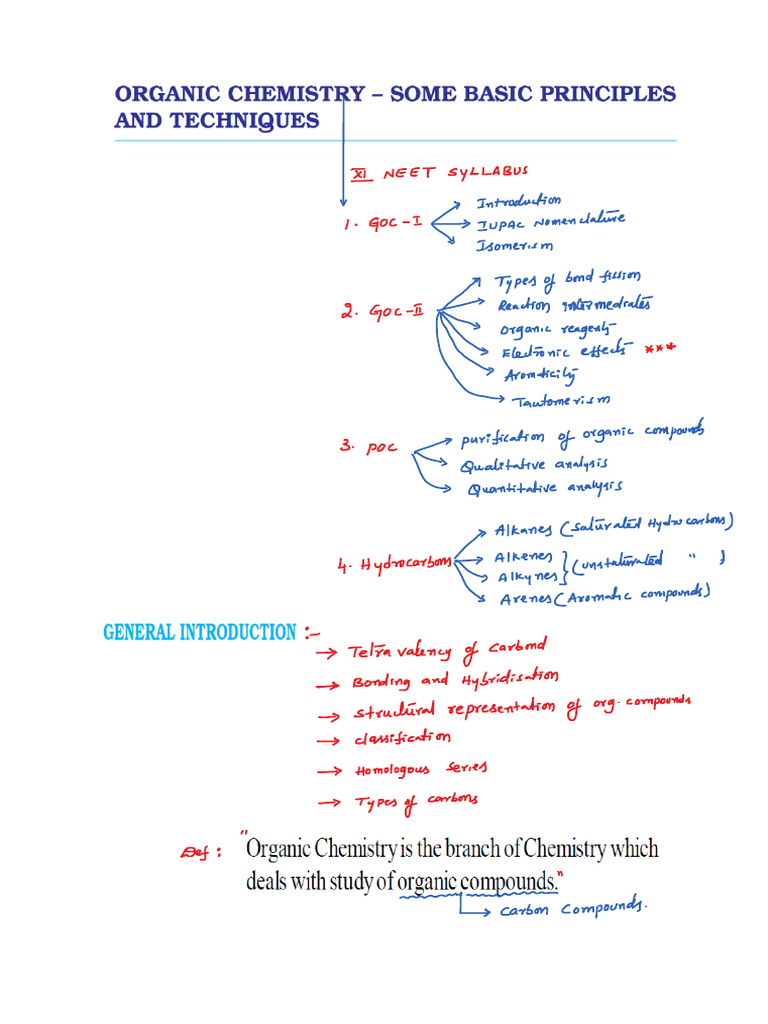 ORGANIC CHEMISTRY – SOME BASIC PRINCIPLES
AND TECHNIQUES
XI NEET SYLLABUS
1. GOC-I
Introduction
IUPAC Nomenclature
Isomerism
2. GOC-II
Types of bond fission
Reaction intermediates
Organic reagents
Electronic effects ***
Aromaticity
Tautomerism
3. POC
purification of organic compounds
Qualitative analysis
Quantitative analysis
4. Hydrocarbons
Alkanes (saturated Hydrocarbons)
Alkenes } (unstaturated " )
Alkynes
Arenes (Aromatic compounds)
GENERAL INTRODUCTION :-
→ Tetra valency of carbond
→ Bonding and Hybridisation
→ structural representation of org. compounds
→ classification
→ Homologous series
→ Types of carbons
Def : "Organic Chemistry is the branch of Chemistry which
deals with study of organic compounds."
→ carbon compounds.